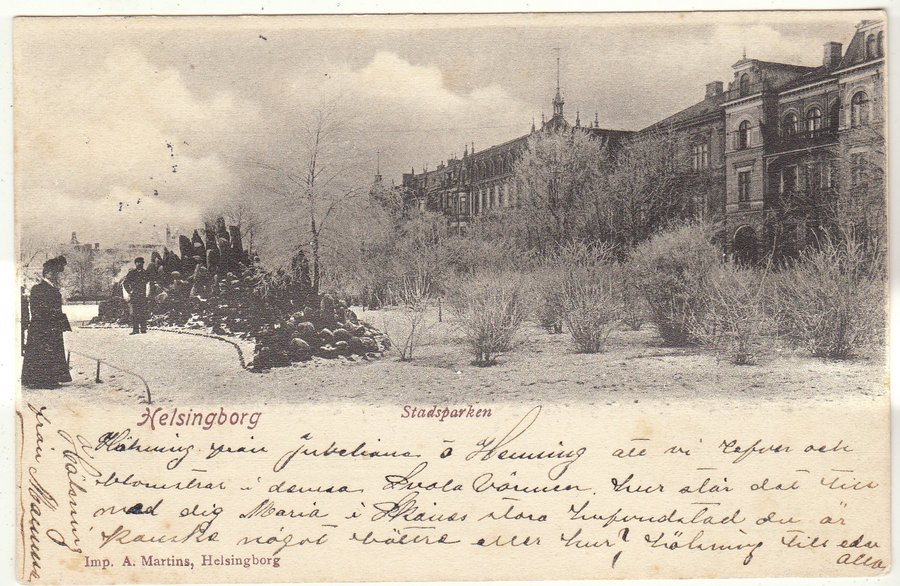 Helsingborg
Stadsparken
Hälsning från Jubeliana ö Henning att vi lefver och
blomstrar i denna Svala Vårmen. hur står det till
med dig Maria i Skånes stora hufvudstad du är
kanske något bättre eller hur? hälsning till eder
alla
Hälsning
från Mamma
Imp. A. Martins, Helsingborg